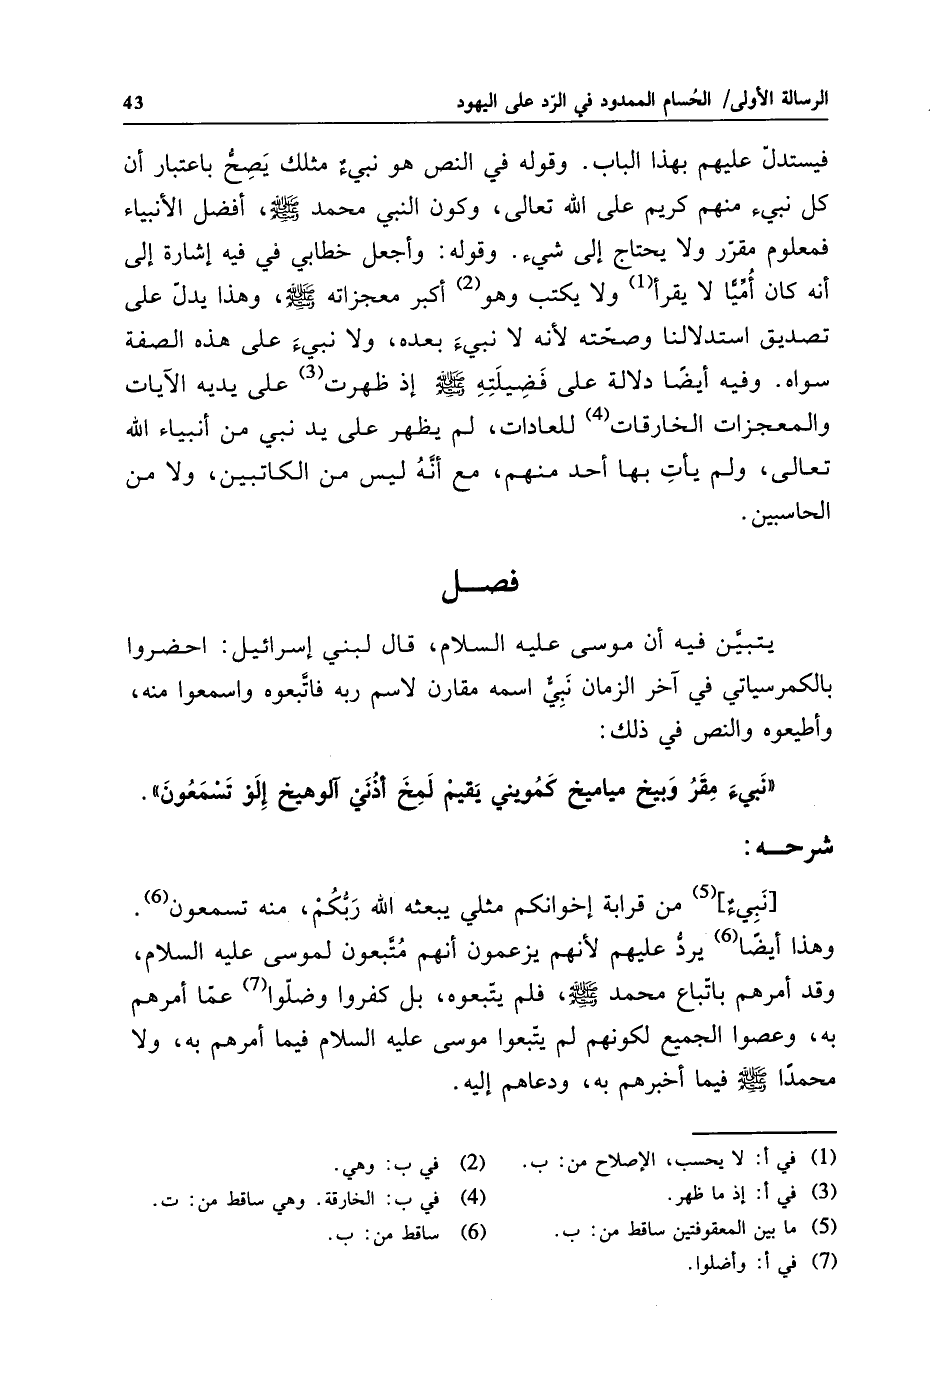 الرسالة الأولى/ الحُسام الممدود في الرّد على اليهود 43
فيستدلّ عليهم بهذا الباب. وقوله في النص هو نبيءٌ مثلك يَصِحُّ باعتبار أن
كل نبيء منهم كريم على الله تعالى، وكون النبي محمد ﷺ، أفضل الأنبياء
فمعلوم مقرّر ولا يحتاج إلى شيء. وقوله: وأجعل خطابي في فيه إشارة إلى
أنه كان أُمّيًّا لا يقرأ(1) ولا يكتب وهو(2) أكبر معجزاته ﷺ، وهذا يدلّ على
تصديق استدلالنا وصحّته لأنه لا نبيءَ بعده، ولا نبيءَ على هذه الصفة
سواه. وفيه أيضًا دلالة على فَضِيلَتِهِ ﷺ إذ ظهرت(3) على يديه الآيات
والمعجزات الخارقات(4) للعادات، لم يظهر على يد نبي من أنبياء الله
تعالى، ولم يأتِ بها أحد منهم، مع أنَّهُ ليس من الكاتبين، ولا من
الحاسبين.
فصـــل
يتبيَّن فيه أن موسى عليه السلام، قال لبني إسرائيل: احضروا
بالكمرسياتي في آخر الزمان نَبِيٌّ اسمه مقارن لاسم ربه فاتَّبعوه واسمعوا منه،
وأطيعوه والنص في ذلك:
«نَبيءَ مِقَرُ وَبيخ مياميخ كَمُويني يَقيمْ لَمِخَ أذُنَيْ آلوهيخ إلَوْ تَسْمَعُونَ».
شرحــه:
[نَبِيءٌ](5) من قرابة إخوانكم مثلي يبعثه الله رَبُّكُمْ، منه تسمعون(6).
وهذا أيضًا(6) يردُّ عليهم لأنهم يزعمون أنهم مُتَّبعون لموسى عليه السلام،
وقد أمرهم باتّباع محمد ﷺ، فلم يتّبعوه، بل كفروا وضلّوا(7) عمّا أمرهم
به، وعصوا الجميع لكونهم لم يتّبعوا موسى عليه السلام فيما أمرهم به، ولا
محمدًا ﷺ فيما أخبرهم به، ودعاهم إليه.
(1) في أ: لا يحسب، الإصلاح من: ب. (2) في ب: وهي.
(3) في أ: إذ ما ظهر. (4) في ب: الخارقة. وهي ساقط من: ت.
(5) ما بين المعقوفتين ساقط من: ب. (6) ساقط من: ب.
(7) في أ: وأضلوا.